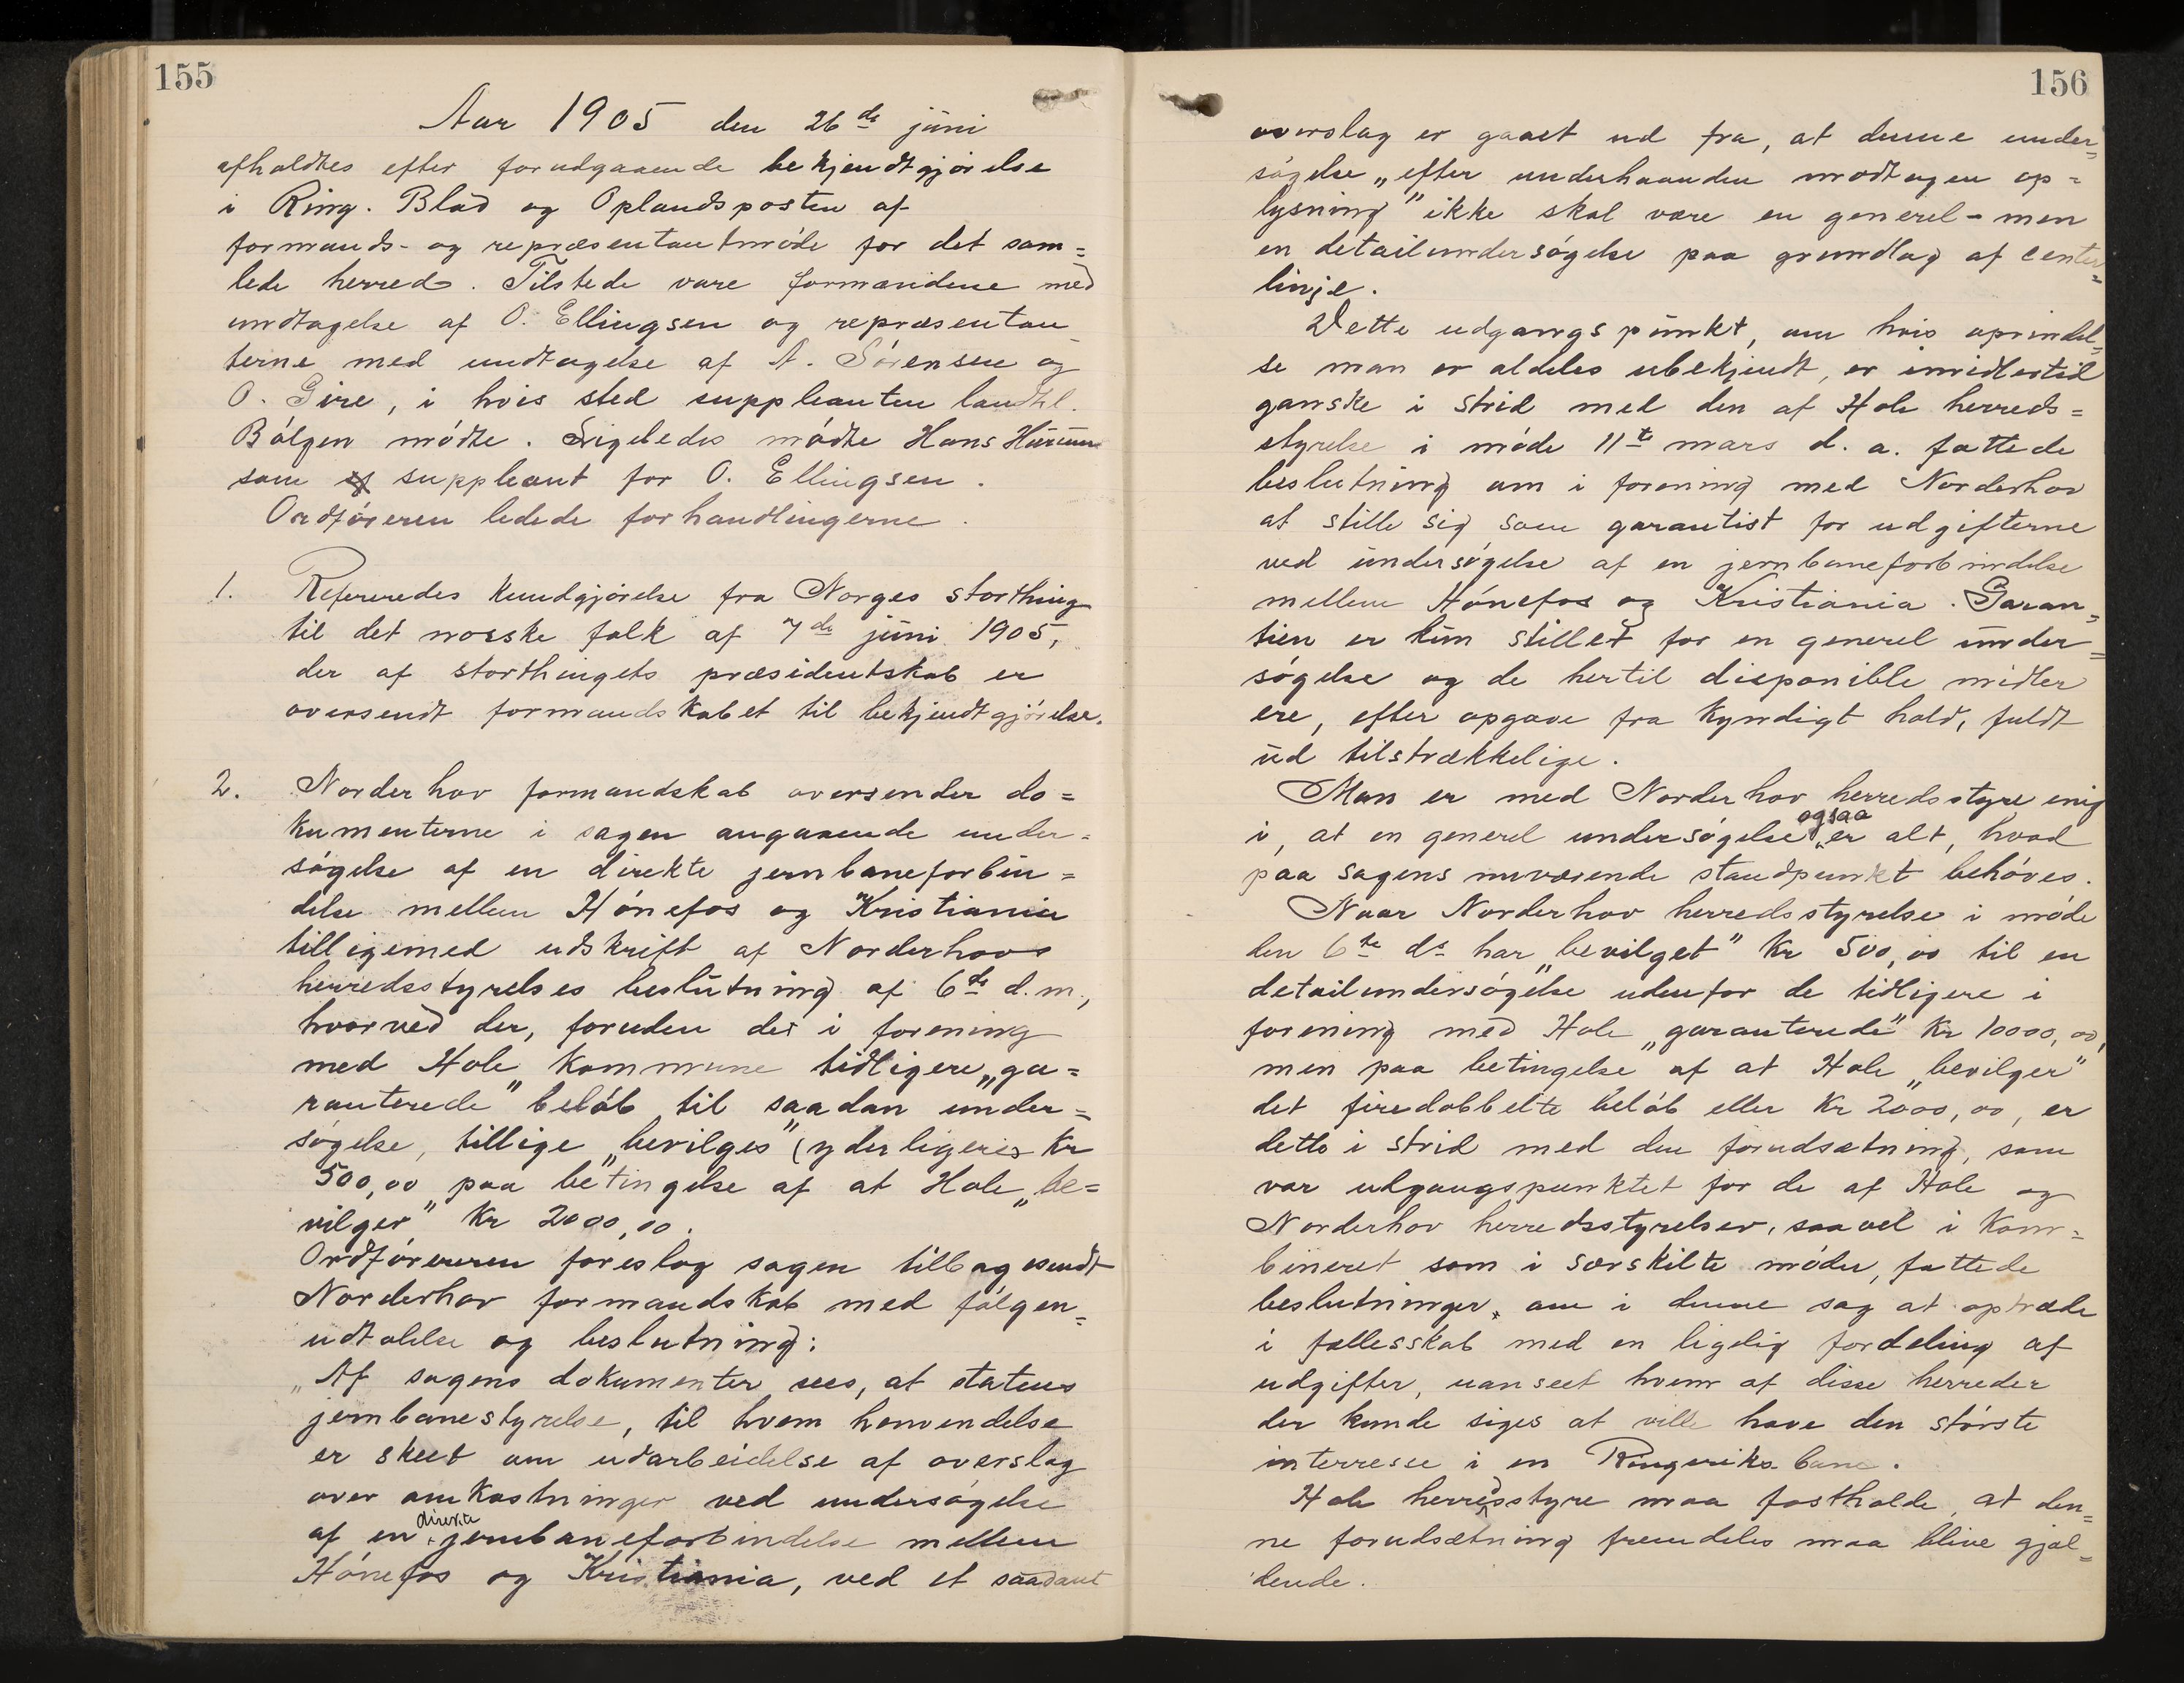 155
Aar 1905 den 26de juni
afholdtes efter forudgaaende bekjendtgjørelse
i Ring. Blad og Oplandsposten af
formands- og repræsentantmøde for det sam=
lede herred. Tilstede vare formændene med
undtagelse af O. Ellingsen og repræsentan
terne med undtagelse af A. Sørensen og
O. Gire, i hvis sted suppleanten landhl.
Bølgen mødte. Ligeledes mødte Hans Hurum
som suppleant for O. Ellingsen.
Ordføreren ledede forhandlingerne.
1. Refereredes kundgjørelse fra Norges storthing
til det norske folk af 7de juni 1905,
der af storthingets præsidentskab er
oversendt formandskabet til bekjendtgjørelse.
2. Norderhov formandskab oversender do=
kumenterne i sagen angaaende under=
søgelse af en direkte jernbaneforbin=
delse mellem Hønefos og Kristiania
tilligemed udskrift af Norderhovs
herredsstyrelses beslutning af 6te d.m.,
hvorved der, foruden det i forening
med Hole kommune tidligere „ga=
ranterede" beløb til saadan under=
søgelse, tillige „bevilges" (yderligere) kr
500,00 paa betingelse af at Hole „be=
vilger" kr 2000,00.
Ordføreren foreslog sagen tilbagesendt
Norderhov formandskab med følgen=
udtalelse og beslutning:
„Af sagens dokumenter sees, at statens
jernbanestyrelse, til hvem henvendelse
er skeet om udarbeidelse af overslag
over omkostninger ved undersøgelse
af en direkte jernbaneforbindelse mellem
Hønefos og Kristiania, ved et saadant
156
overslag er gaaet ud fra, at denne under=
søgelse „efter underhaanden modtagen op=
lysning" ikke skal være en generel - men
en detailundersøgelse paa grundlag af center=
linje.
Dette udgangspunkt, om hvis oprindel=
se man er aldeles ubekjendt, er imidlertid
ganske i strid med den af Hole herreds=
styrelse i møde 11te mars d. a. fattede
beslutning om i forening med Norderhov
at stille sig som garantist for udgifterne
ved undersøgelse af en jernbaneforbindelse
mellem Hønefos og Kristiania. Garan=
tien er kun stillet for en generel under=
søgelse og de hertil disponible midler
ere, efter opgave fra kyndigt hold, fuldt
ud tilstrækkelige.
Man er med Norderhov herredsstyre enig
i, at en generel undersøgelse ogsaa er alt, hvad
paa sagens nuværende standpunkt behøves.
Naar Norderhov herredsstyrelse i møde
den 6te ds har „bevilget" kr 500,00 til en
detailundersøgelse udenfor de tidligere i
forening med Hole „garanterede" kr 10000,00,
men paa betingelse af at Hole „bevilger"
det firedobbelte beløb eller kr 2000,00, er
dette i strid med den forudsætning, som
var udgangspunktet for de af Hole og
Norderhov herredsstyrelser, saavel i kom=
bineret som i særskilte møder, fattede
beslutninger, om i denne sag at optræde
i fællesskab med en ligelig fordeling af
udgifter, uanseet hvem af disse herreder
der kunde siges at ville have den største
interresse i en Ringeriksbane.
Hole herredsstyre maa fastholde, at den=
ne forudsætning fremdeles maa blive gjæl=
dende.